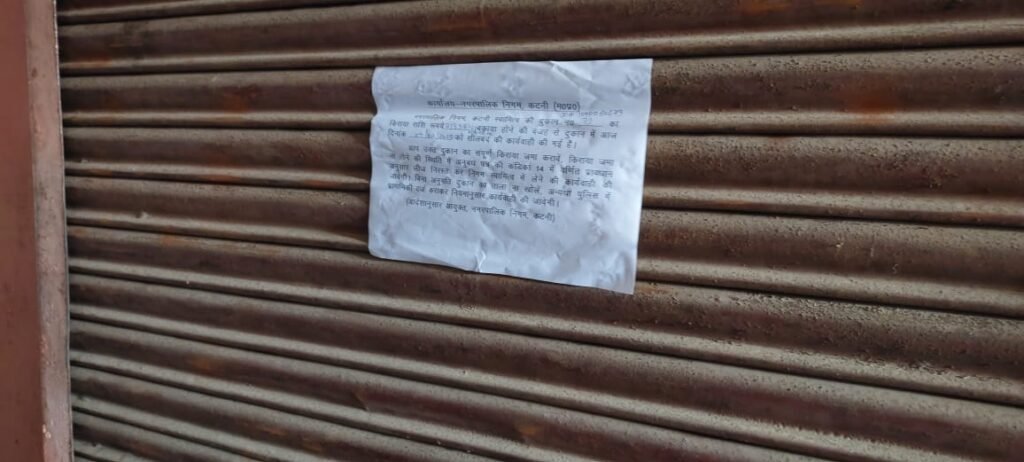 कार्यालय-नगरपालिक निगम, कटनी (म0प्र0)
नगरपालिक निगम, कटनी स्वामित्व की दुकान का
किराया राशि रूपये बकाया होने की वजह से दुकान में आज
दिनांक को सीलबंद की कार्यवाही की गई है।
आप उक्त दुकान का संपूर्ण किराया जमा करावें, किराया जमा
न होने की स्थिति में अनुबंध पत्र की कंडिका 14 में वर्णित प्रावधान
अनुसार लीज निरस्त कर निगम स्वामित्व में लेने की कार्यवाही की
जावेगी। बिना अनुमति दुकान का ताला ना खोलें, अन्यथा पुलिस में
प्राथमिकी दर्ज कराकर नियमानुसार कार्यवाही की जावेगी।
(आदेशानुसार आयुक्त, नगरपालिक निगम, कटनी)